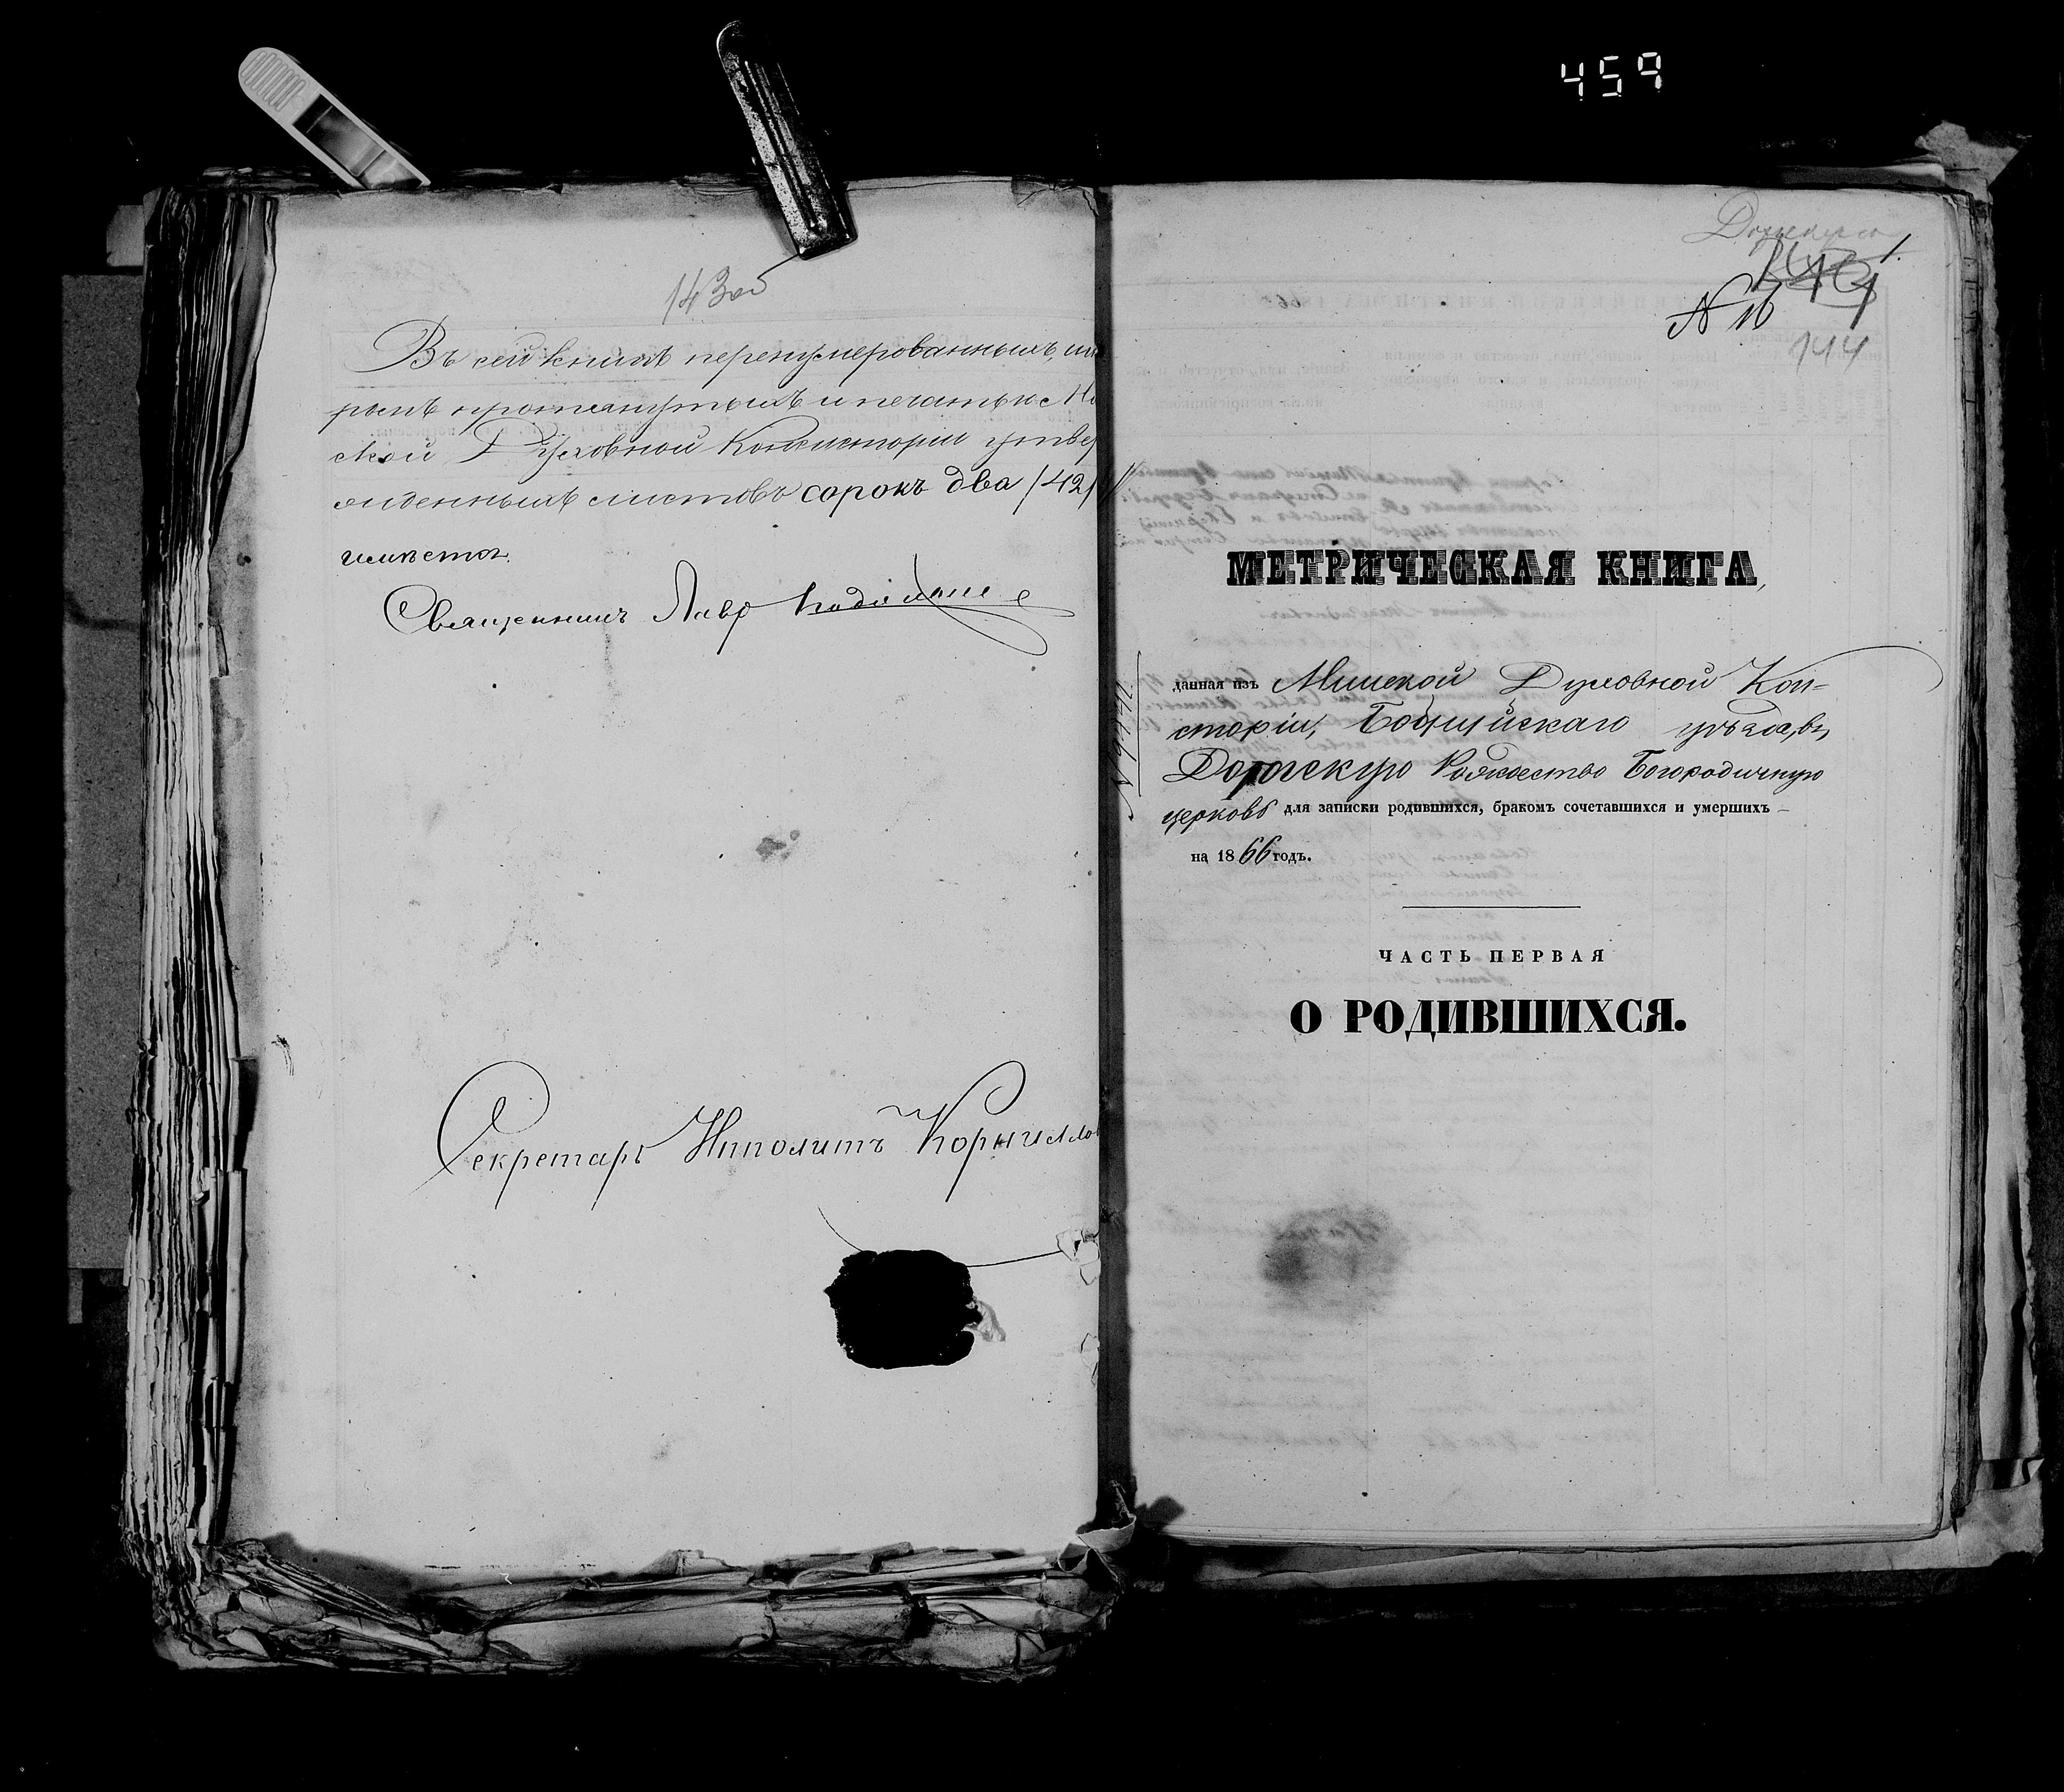 459
143об
Въ сей книгѣ перенумерованныхъ, шну
ромъ протянутыхъ и печатью Ми
ской Духовной Консисторіи утвер
жденныхъ листовъ сорокъ два /42/
имѣется.
Священникъ Лавр
Секретарь Ипполитъ Корнилло
1.
N 16
144
МЕТРИЧЕСКАЯ КНИГА,
данная изъ Минской Духовной Кон-
сторіи, Бобруйскаго уѣзда, въ
Дорогскую Рождество Богородичную
церковь для записки родившихся, бракомъ сочетавшихся и умершихъ —
на 1866 годъ.
ЧАСТЬ ПЕРВАЯ
О РОДИВШИХСЯ.